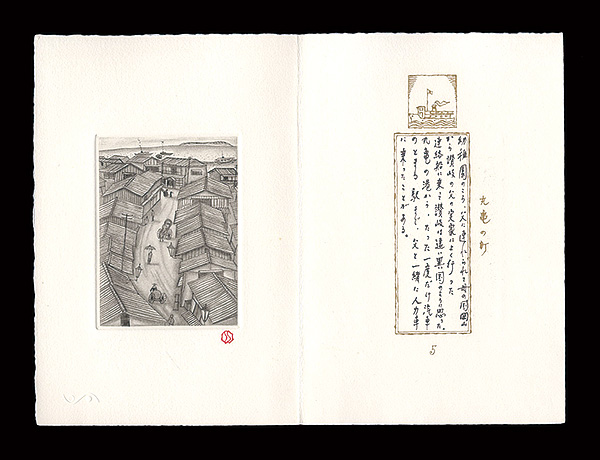 丸亀の町
幼稚園のころ、父に連れられて母の国岡山
から讃岐の父の実家によく行った
連絡船に乗って讃岐は遠い異国のように思った。
丸亀の港から、たった一度だけ汽車
のとまる駅まで、父と一緒に人力車
に乗ったことがある。
5